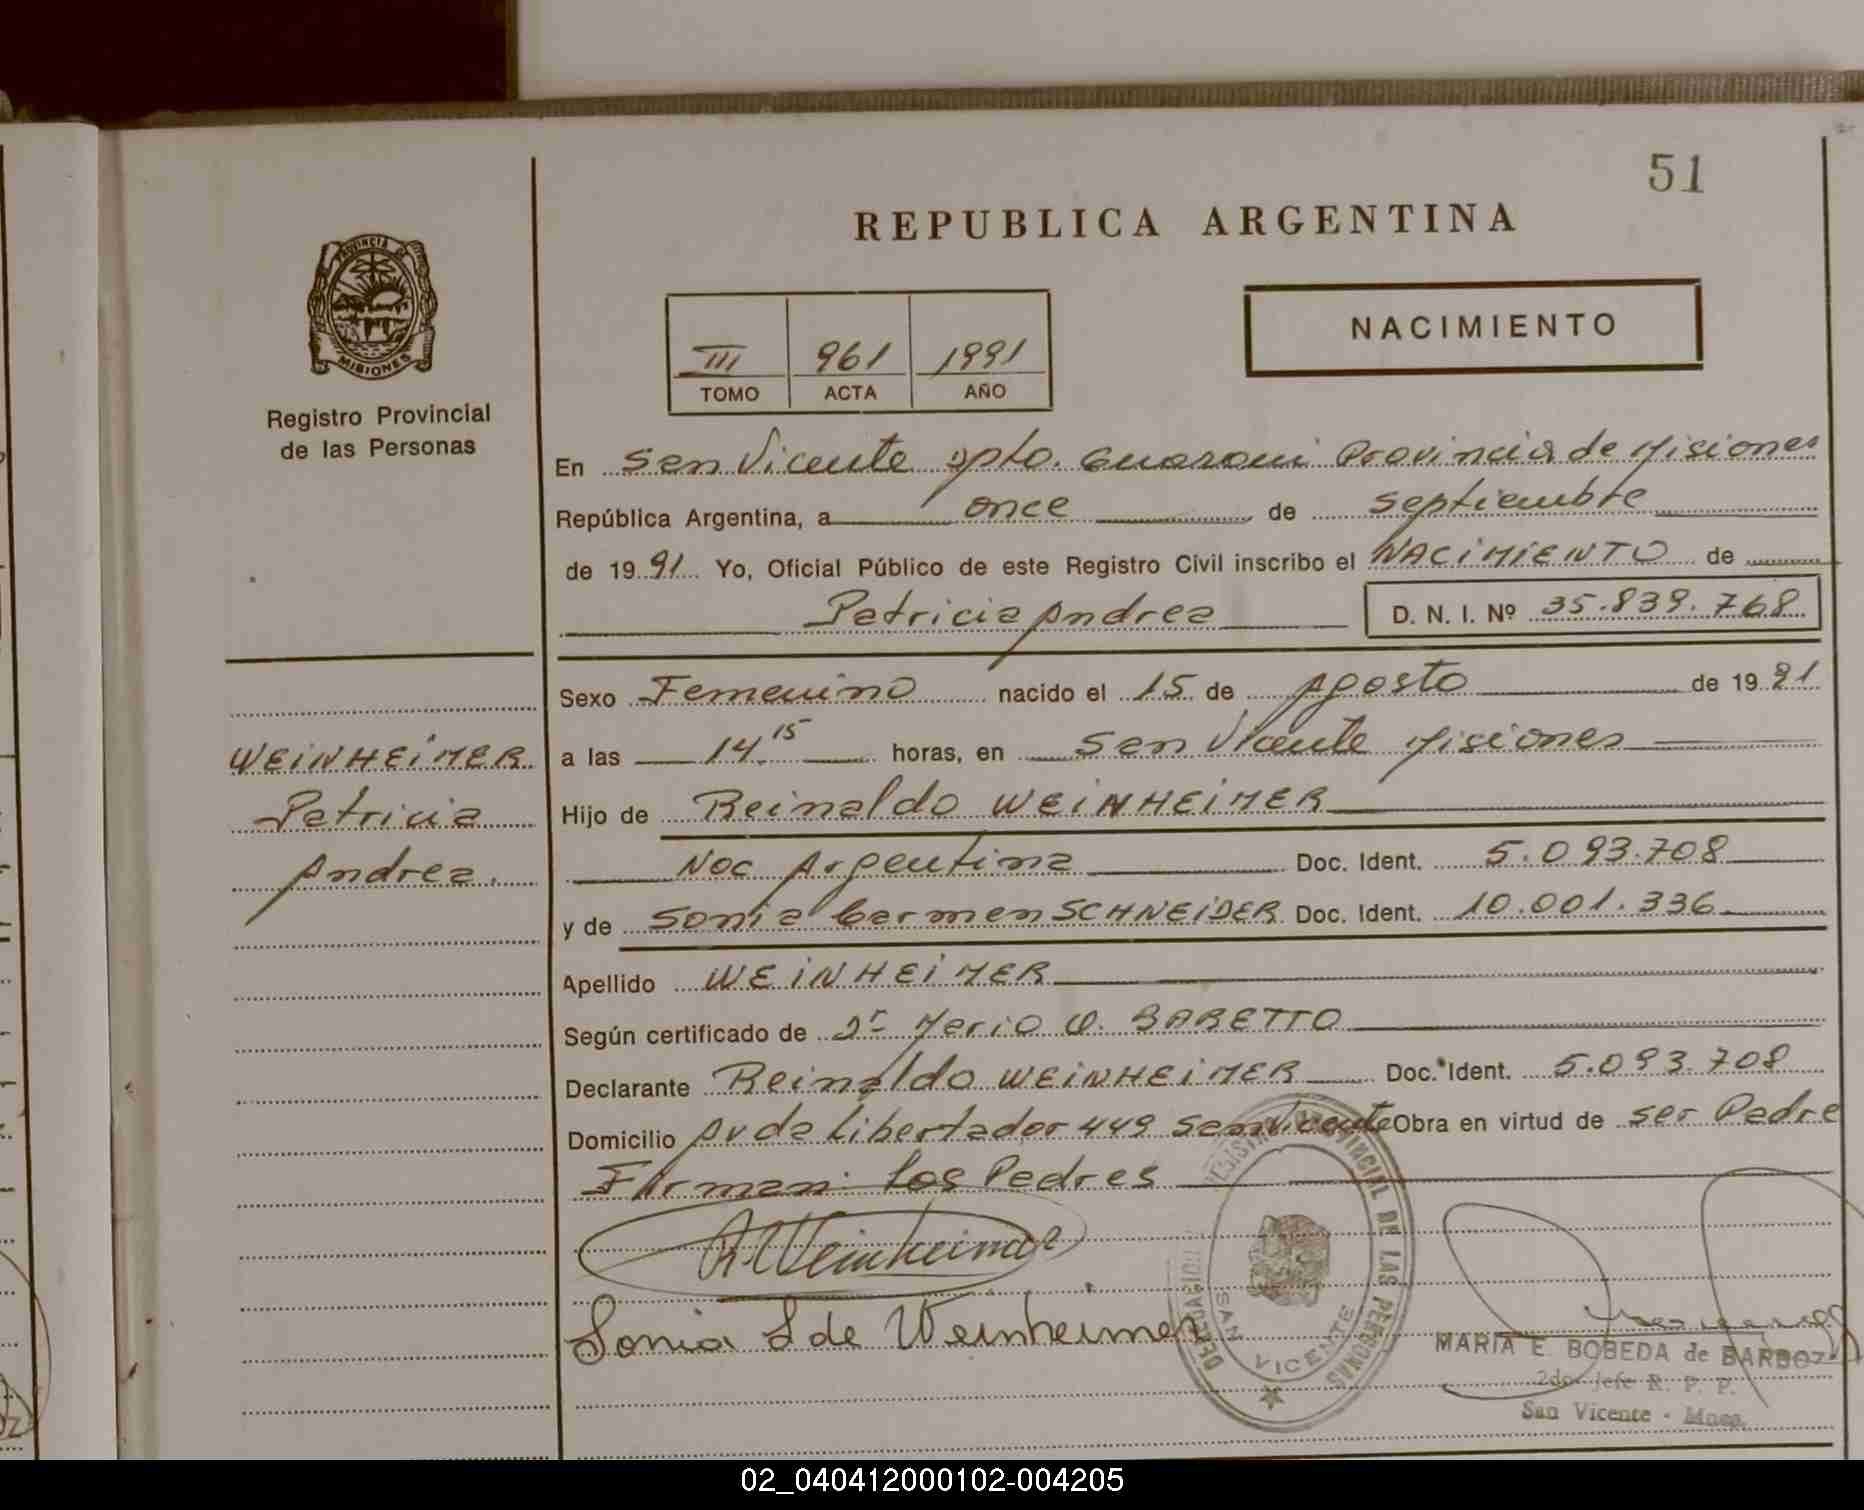 51
REPUBLICA ARGENTINA
PROVINCIA DE
MISIONES
Registro Provincial
de las Personas
NACIMIENTO
III 961 1991
TOMO ACTA AÑO
En San Vicente Dpto. Guarani Provincia de Misiones
República Argentina, a once de septiembre
de 1991 Yo, Oficial Público de este Registro Civil inscribo el NACIMIENTO de
Patricia Andrea D. N. I. Nº 35.839.768
Sexo Femenino nacido el 15 de Agosto de 1991
a las 14.15 horas, en San Vicente Misiones
Hijo de Reinaldo WEINHEIMER
Nac Argentina Doc. Ident. 5.093.708
y de Sonia Carmen SCHNEIDER Doc. Ident. 10.001.336
Apellido WEINHEIMER
Según certificado de Dr Mario O. BARETTO
Declarante Reinaldo WEINHEIMER Doc. Ident. 5.093.708
Domicilio Avda Libertador 449 San Vicente Obra en virtud de ser Padre
Firman los Padres
WEINHEIMER
Patricia
Andrea.
R. Weinheimer
Sonia S de Weinheimer
REGISTRO PROVINCIAL DE LAS PERSONAS
DELEGACION
SAN VICENTE
MARIA E. BOBEDA de BARBOZA
2do Jefe R. P. P.
San Vicente - Mnes.
02_040412000102-004205